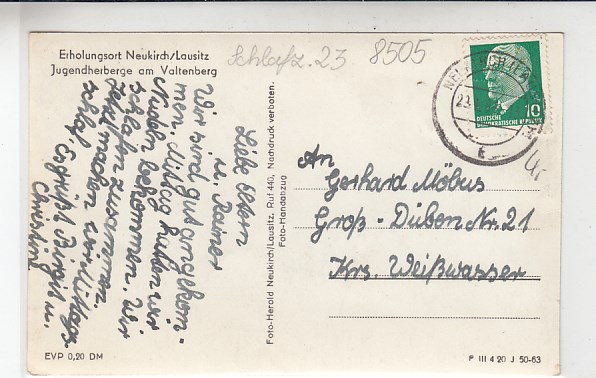 Erholungsort Neukirch/Lausitz
Jugendherberge am Valtenberg
Schlafz. 23 8505
Liebe Eltern
u. Rainer
Wir sind gut angekom-
men. Mittag haben wir
Nudeln bekommen. Wir
schlafen zusammen.
Jetzt machen wir
schlaf. Es grüßt Birgit u.
Christine
Foto-Herold Neukirch/Lausitz, Ruf 440, Nachdruck verboten.
Foto-Handabzug
NEUKIRCH (LAUSITZ)
23.
E
DEUTSCHE
DEMOKRATISCHE REPUBLIK
10
An
Gerhard Möbus
Groß-Düben Nr. 21
Krs. Weißwasser
EVP 0,20 DM
P III 4 20 J 50-63